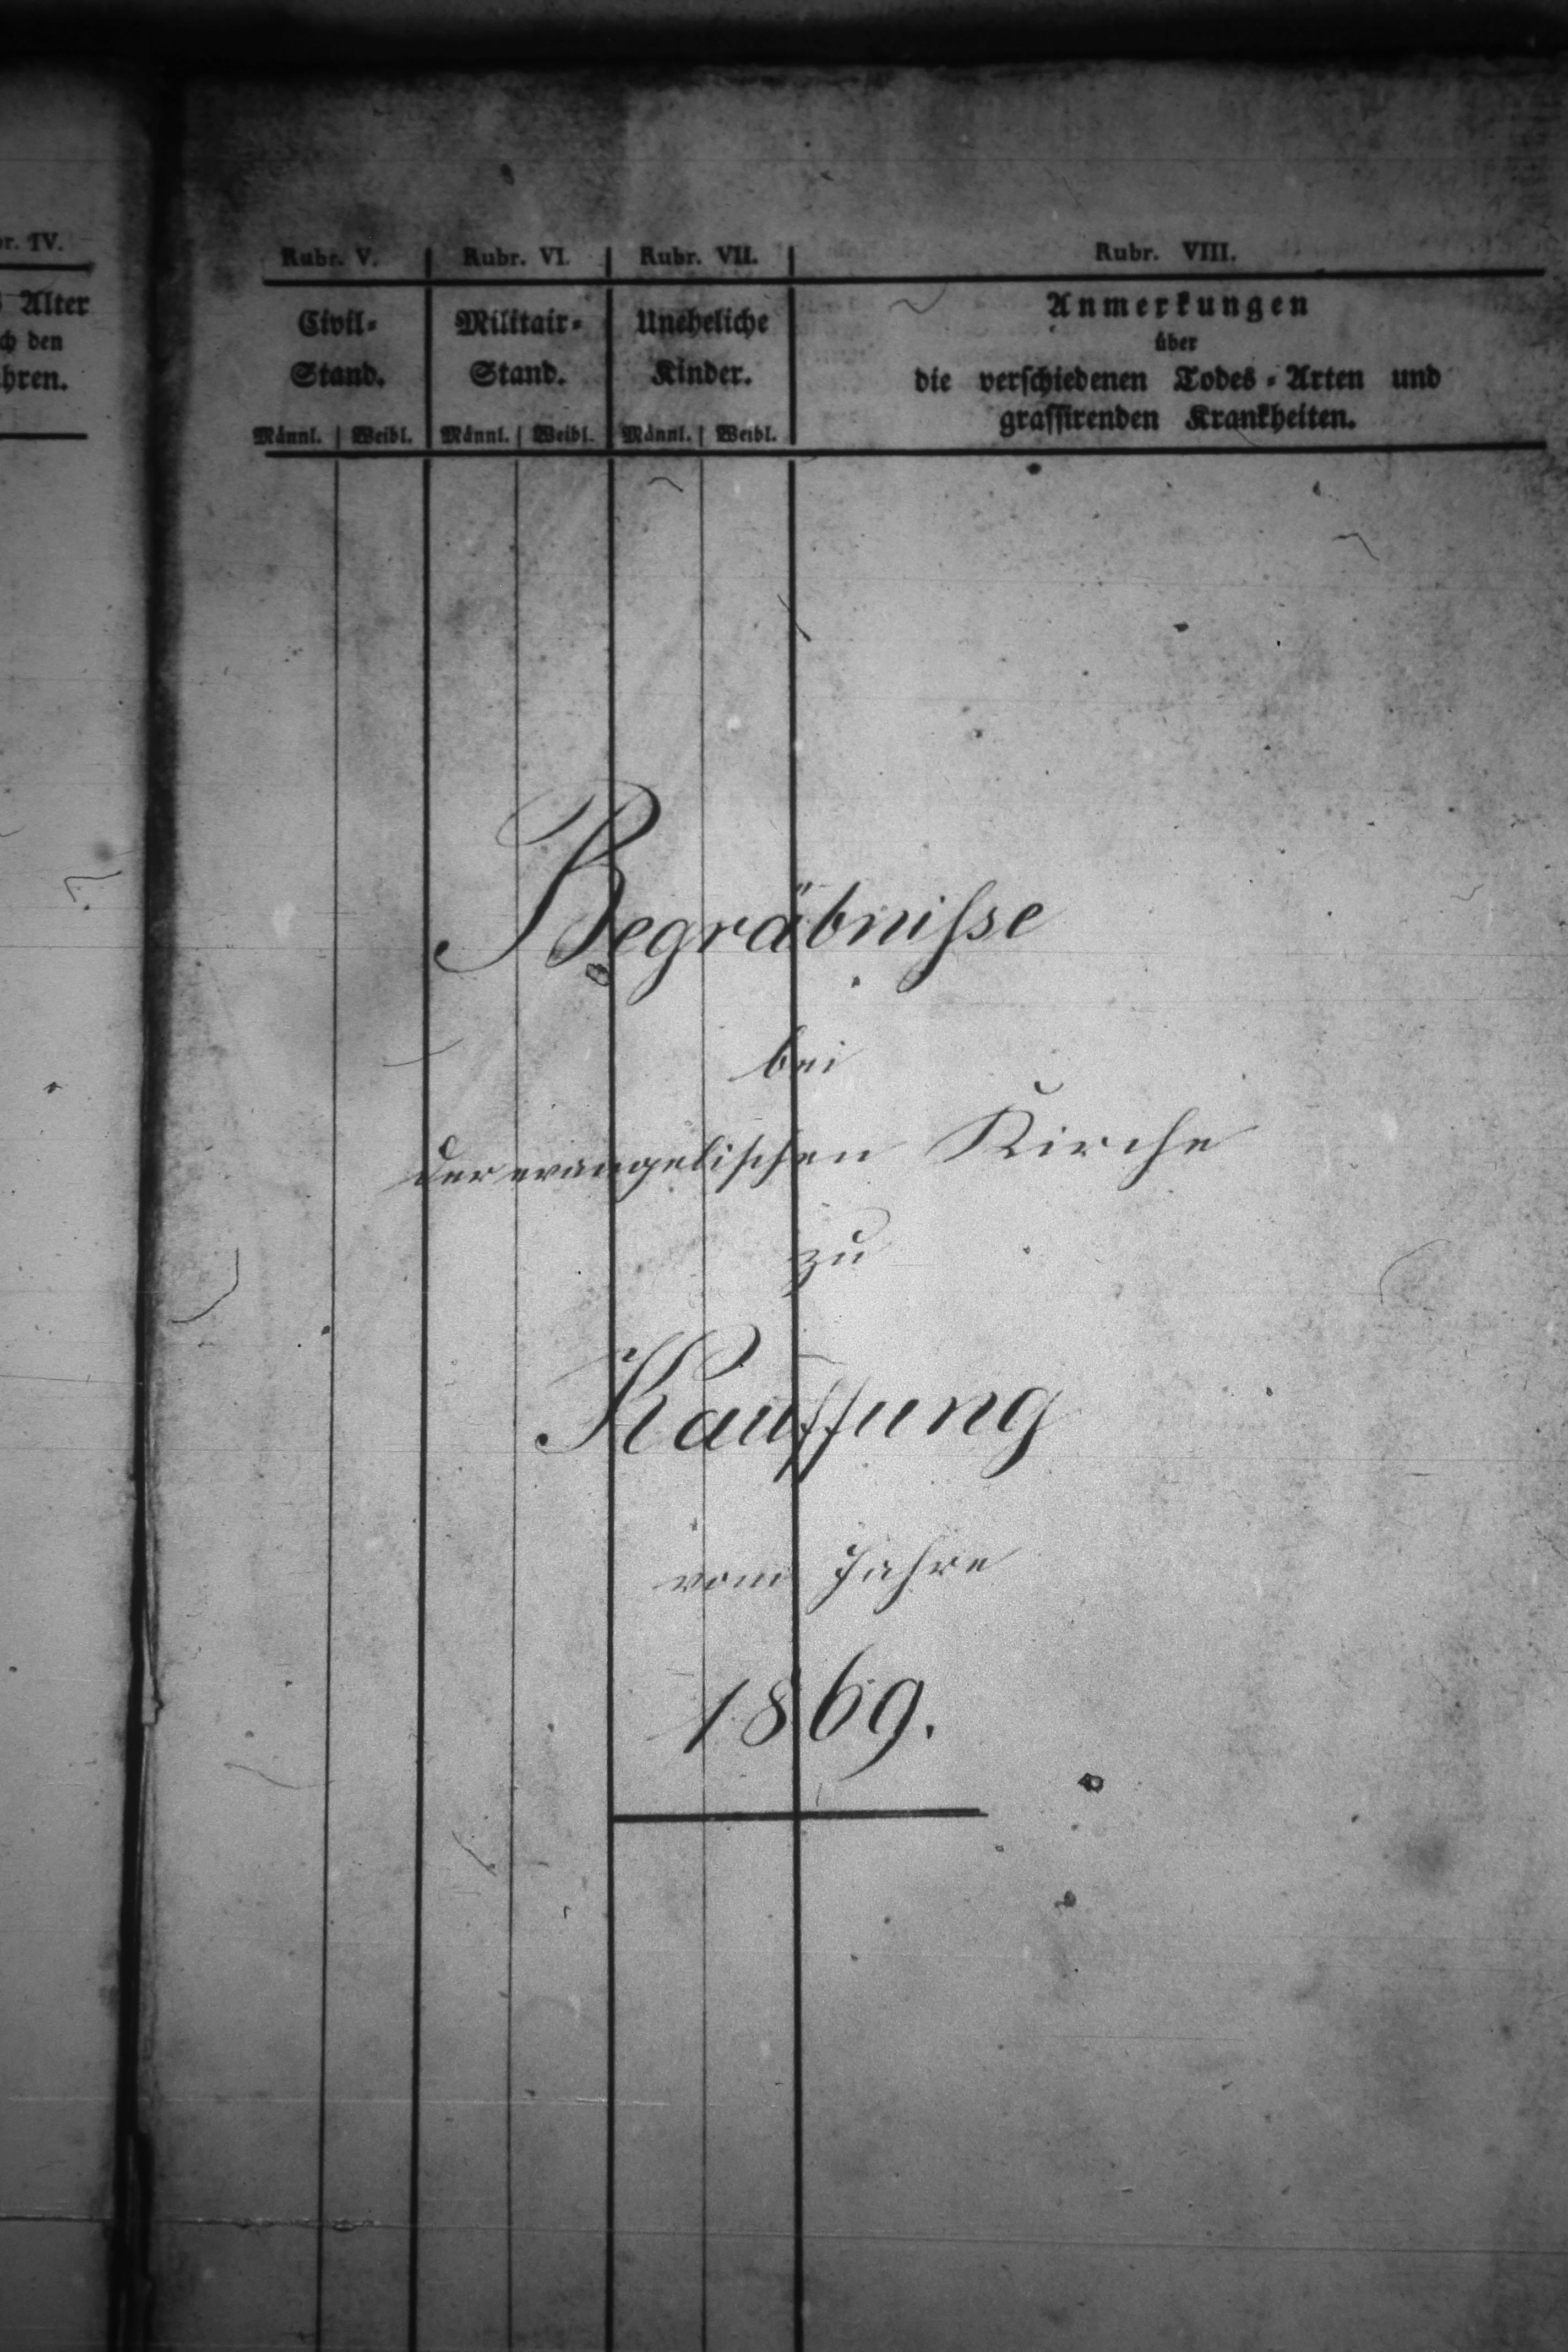 r. IV.
Alter
ch den
hren.
Rubr. V.
Rubr. VI.
Rubr. VII.
Rubr. VIII.
Civil-
Stand.
Militair-
Stand.
Uneheliche
Kinder.
Anmerkungen
über
die verschiedenen Todes-Arten und
grassirenden Krankheiten.
Männl. Weibl.
Männl. Weibl.
Männl. Weibl.
Begräbnisse
bei
der evangelischen Kirche
zu
Kauffung
vom Jahre
1869.